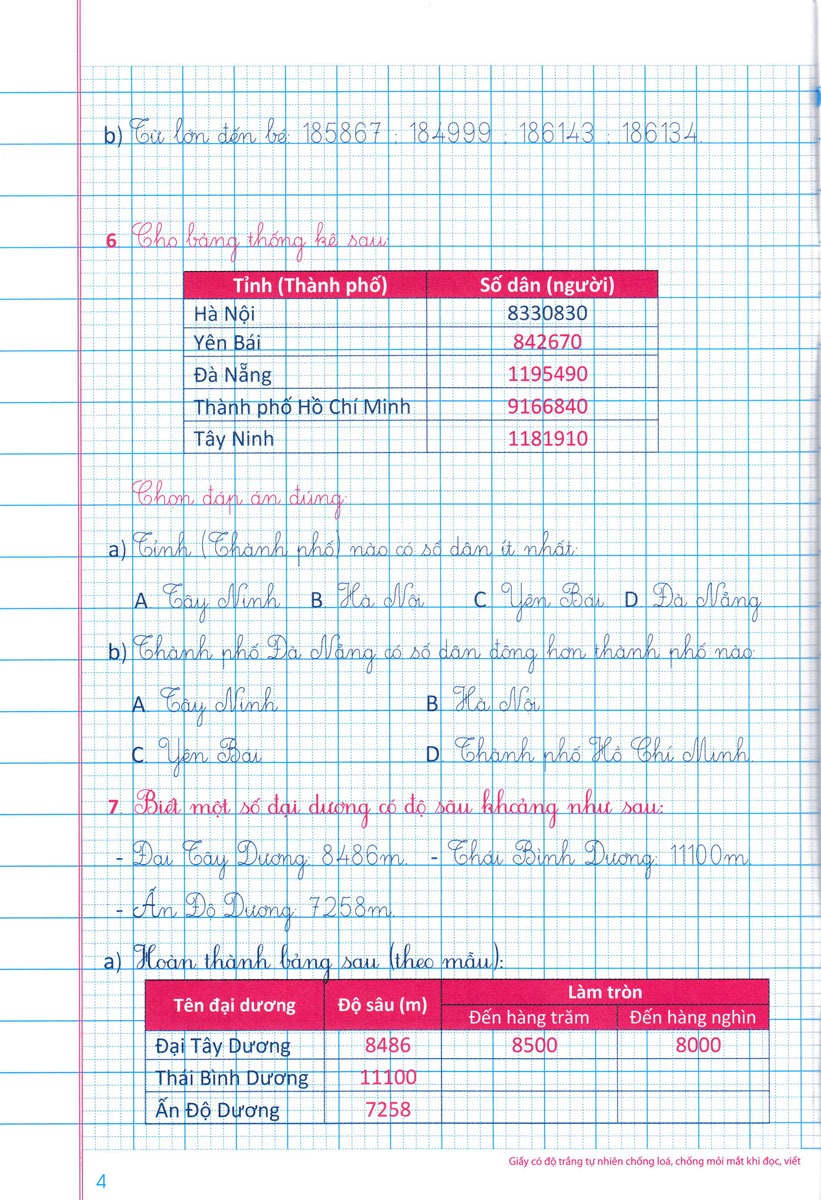 b) Từ lớn đến bé: 185867 ; 184999 ; 186143 ; 186134.
6 Cho bảng thống kê sau:
Tỉnh (Thành phố) Số dân (người)
Hà Nội 8330830
Yên Bái 842670
Đà Nẵng 1195490
Thành phố Hồ Chí Minh 9166840
Tây Ninh 1181910
Chọn đáp án đúng:
a) Tỉnh (Thành phố) nào có số dân ít nhất:
A. Tây Ninh B. Hà Nội C. Yên Bái D. Đà Nẵng
b) Thành phố Đà Nẵng có số dân đông hơn thành phố nào:
A. Tây Ninh B. Hà Nội
C. Yên Bái D. Thành phố Hồ Chí Minh
7. Biết một số đại dương có độ sâu khoảng như sau:
- Đại Tây Dương: 8486m. - Thái Bình Dương: 11100m.
- Ấn Độ Dương: 7258m.
a) Hoàn thành bảng sau (theo mẫu):
Tên đại dương Độ sâu (m) Làm tròn
Đến hàng trăm Đến hàng nghìn
Đại Tây Dương 8486 8500 8000
Thái Bình Dương 11100
Ấn Độ Dương 7258
Giấy có độ trắng tự nhiên chống loá, chống mỏi mắt khi đọc, viết
4